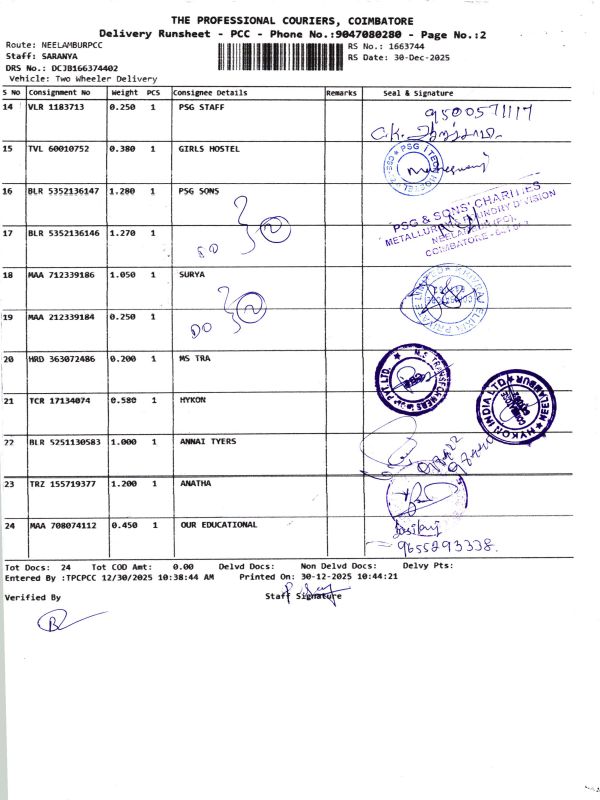 THE PROFESSIONAL COURIERS, COIMBATORE
Delivery Runsheet - PCC - Phone No.:9047080280 - Page No.:2
Route: NEELAMBURPCC
RS No.: 1663744
Staff: SARANYA
RS Date: 30-Dec-2025
DRS No.: DCJB166374402
Vehicle: Two Wheeler Delivery
S No Consignment No Weight PCS Consignee Details Remarks Seal & Signature
14 VLR 1183713 0.250 1 PSG STAFF
9500571117
15 TVL 60010752 0.380 1 GIRLS HOSTEL
16 BLR 5352136147 1.280 1 PSG SONS
PSG & SONS' CHARITIES
METALLURGY & FOUNDRY DIVISION
17 BLR 5352136146 1.270 1
DO 2
18 MAA 712339186 1.050 1 SURYA
19 MAA 212339184 0.250 1
DO 2
20 HRD 363072486 0.200 1 MS TRA
M.S. TRANSFORMERS PVT.LTD.
21 TCR 17134074 0.580 1 HYKON
HYKON INDIA LTD. NEELAMBUR
22 BLR 5251130583 1.000 1 ANNAI TYERS
23 TRZ 155719377 1.200 1 ANATHA
24 MAA 708074112 0.450 1 OUR EDUCATIONAL
9655293338.
Tot Docs: 24 Tot COD Amt: 0.00 Delvd Docs: Non Delvd Docs: Delvy Pts:
Entered By :TPCPCC 12/30/2025 10:38:44 AM Printed On: 30-12-2025 10:44:21
Verified By Staff Signature